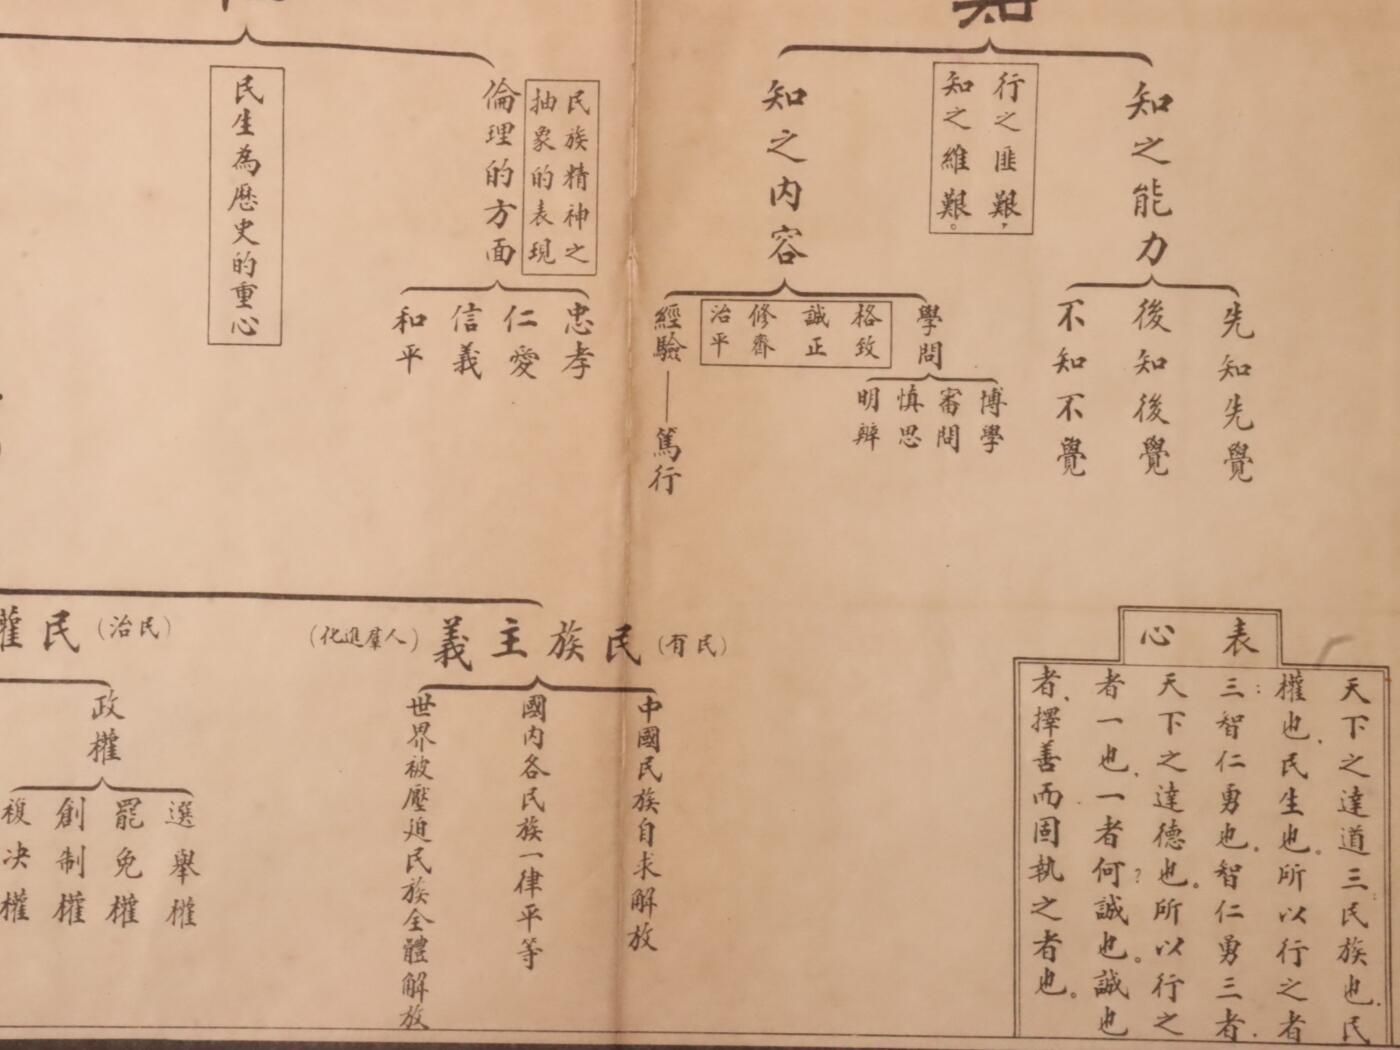 知之能力
先知先覺
後知後覺
不知不覺
行之匪艱，
知之維艱。
知之內容
學問
博學
審問
慎思
明辨
格致
誠正
修齊
治平
經驗
篤行
民族精神之
抽象的表現
倫理的方面
忠孝
仁愛
信義
和平
民生為歷史的重心
(民有)
民族主義
(人羣進化)
中國民族自求解放
國內各民族一律平等
世界被壓迫民族全體解放
(民治)
民權
政權
選舉權
罷免權
創制權
複決權
表心
天下之達道三：民族也，民
權也，民生也。所以行之者
三：智仁勇也。智仁勇三者，
天下之達德也。所以行之
者一也，一者何？誠也。誠也
者，擇善而固執之者也。